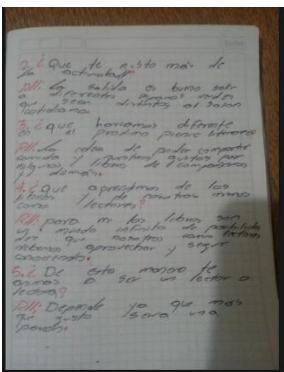 2. ¿Que te gusto más de
la actividad?
R//: La salida es bueno salir
a diferentes
que sean distintos al salon
cotidiano.
3. ¿que hariamos diferente
en el proximo picnic literario
R//: La idea de poder compartir
comida y nuestros gustos por
algunos libros de compañeros
y demás.
4. ¿Que aprendimos de los
libros y de nosotros mismos
como lectores?
R//: para mi los libros son
un mundo infinito de posibilidades
del que nosotros como lectores
debemos aprovechar y seguir
conociendo.
5. ¿De esta manera te
animas a ser un lector o
lectora?
R//: Depende ya que mas
que gusto seria una